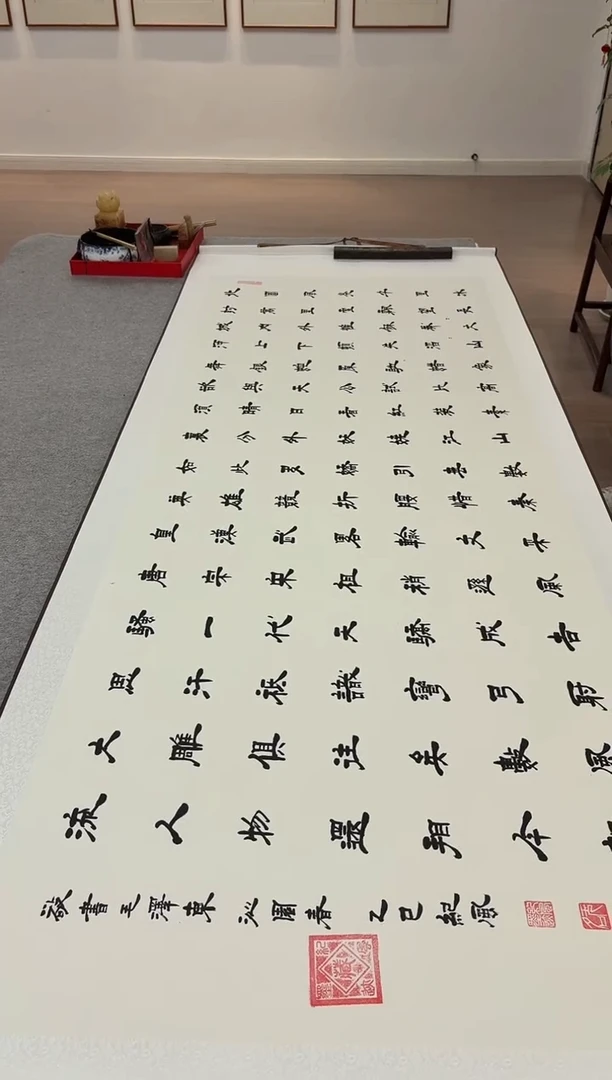 北國風光千里冰
封萬里雪飄望長
城內外惟餘莽大
河上下頓失滔山
舞銀蛇原馳蠟象
欲與天公試比高
須晴日看紅裝素
裹分外妖嬈江山
如此多嬌引無數
英雄競折腰惜秦
皇漢武畧輸文采
唐宗宋祖稍遜風
騷一代天驕成吉
思汗祗識彎弓射
大雕俱往矣數風
流人物還看今
敬書毛澤東 沁園春 乙巳 紀風